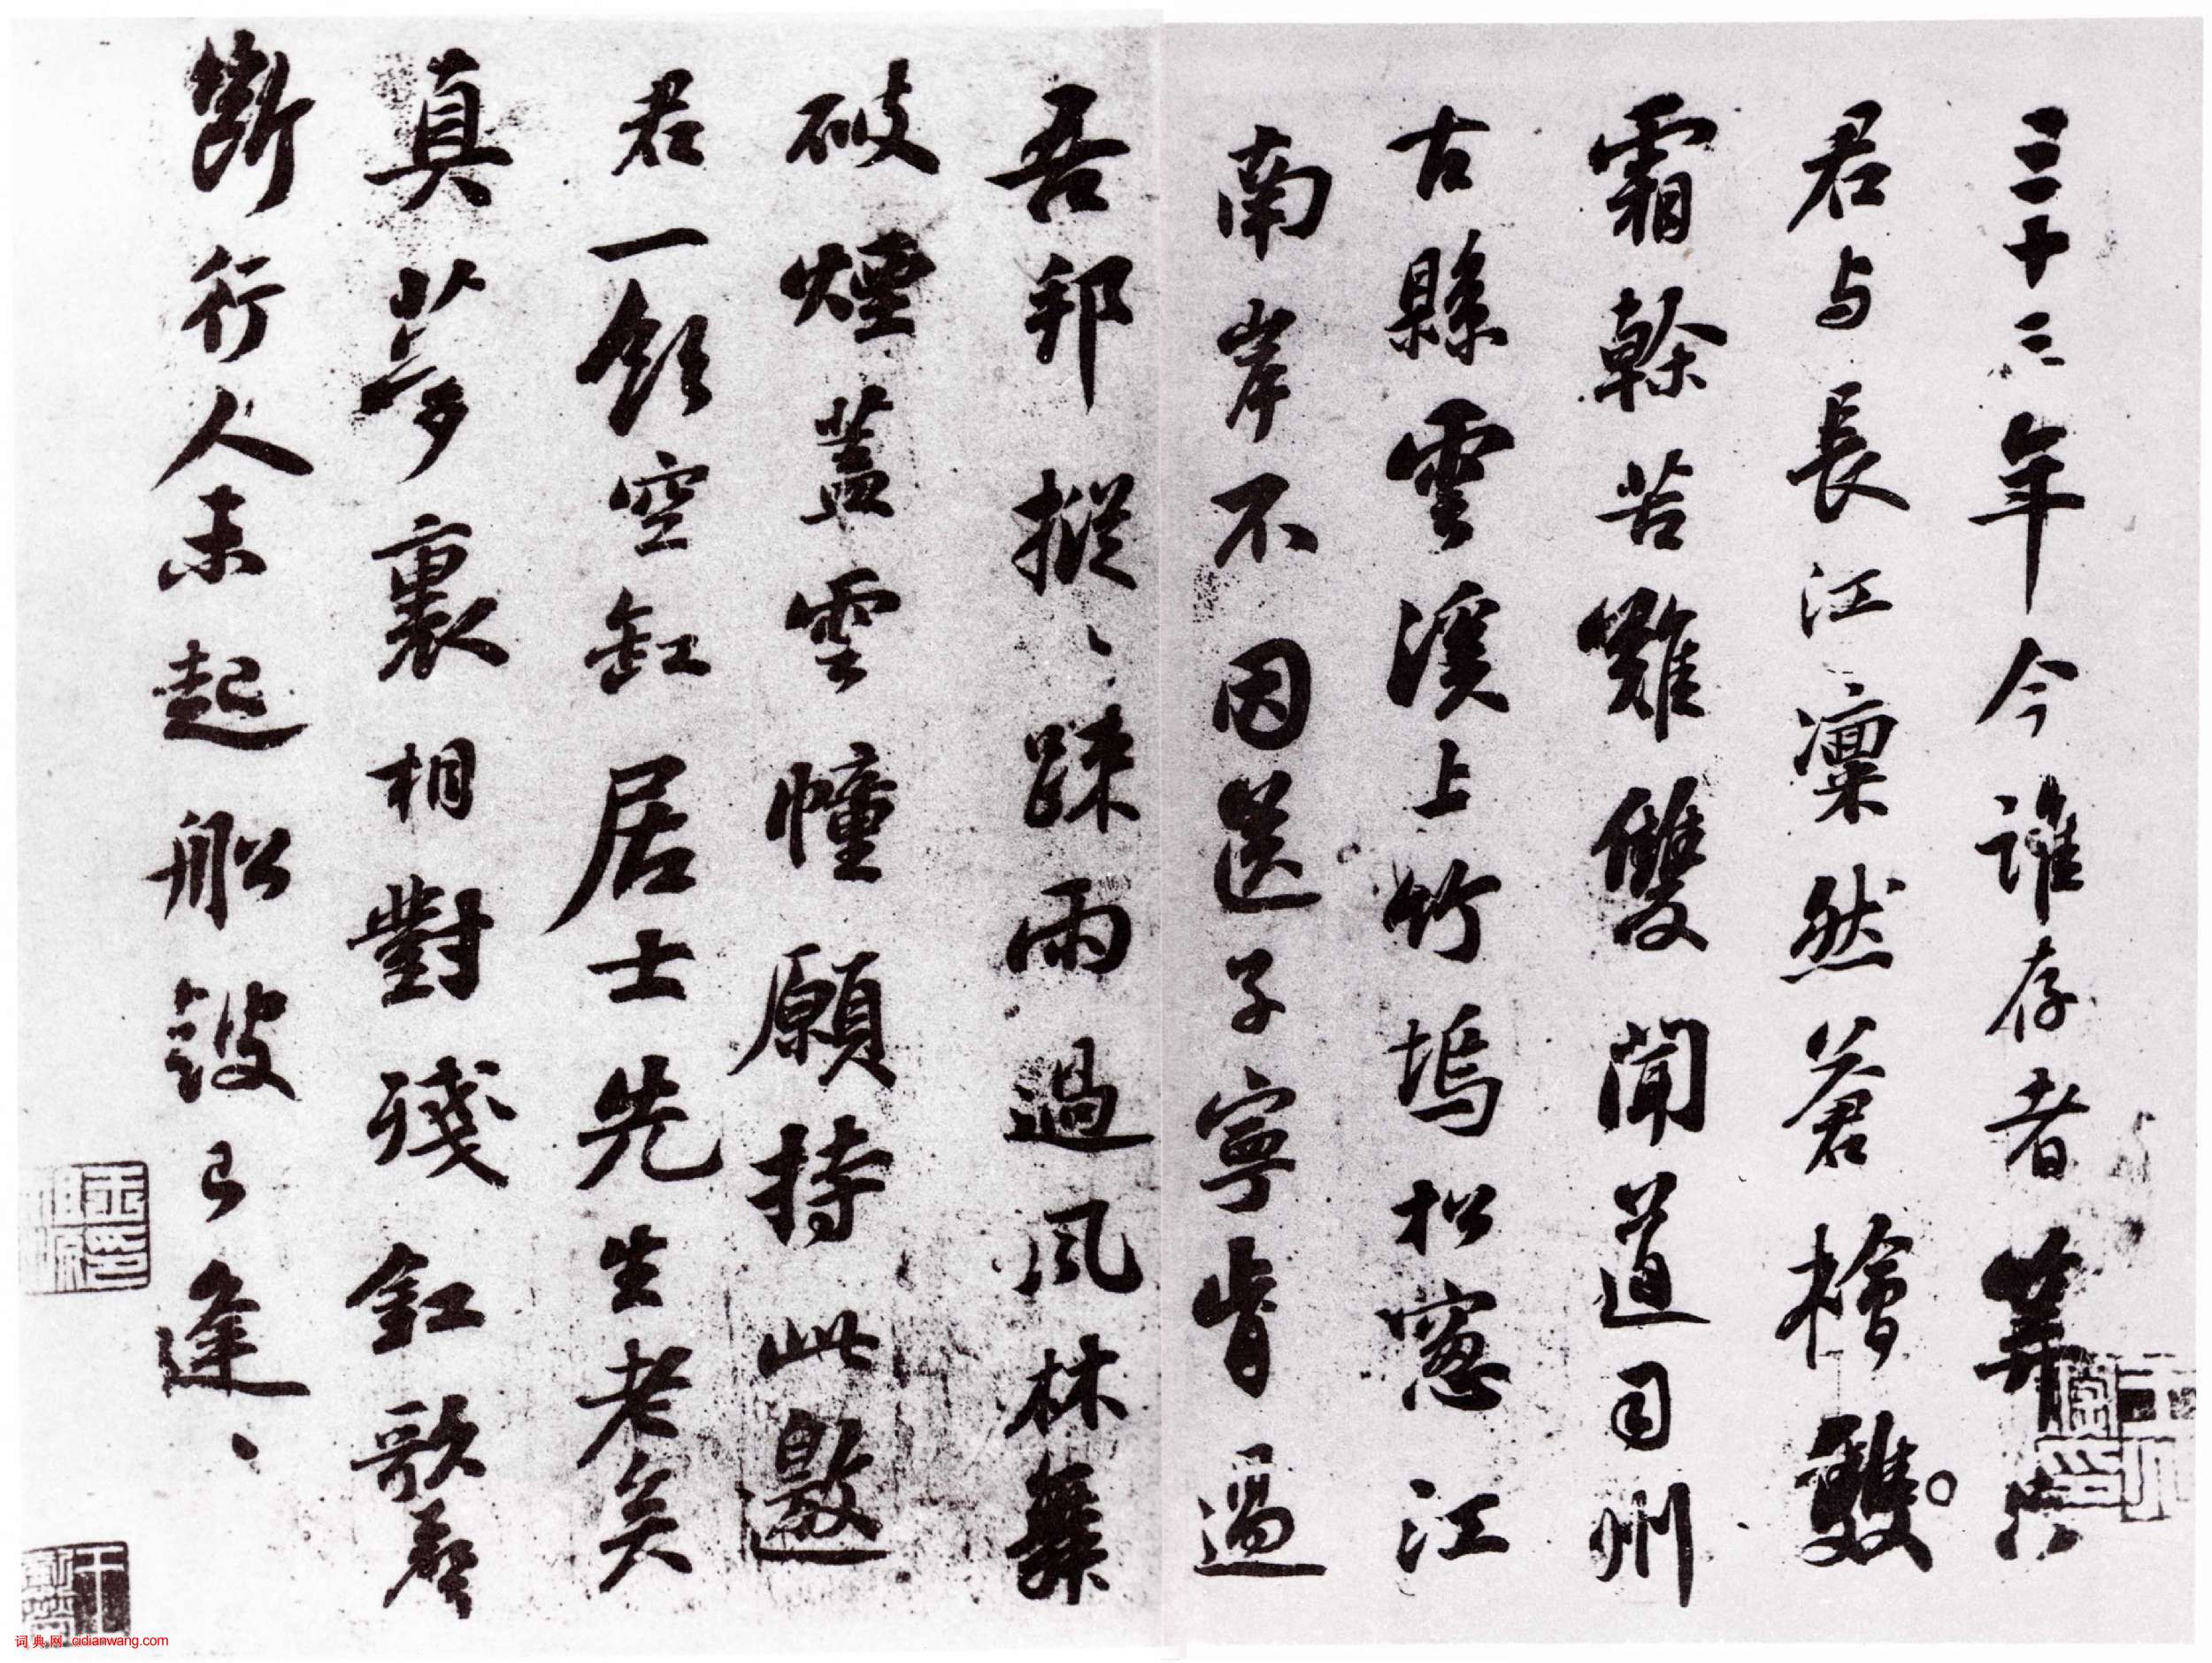 三十三年今誰存者筭只
君与長江凜然蒼檜雙
霜榦苦難雙聞道司州
古縣雲溪上竹塢松窓江
南岸不因送子寧肯過
吾邦摐〻踈雨過風林舞
破煙蓋雲幢願持此邀
君一飲空缸居士先生老矣
真夢裏相對殘釭歌聲
斷行人未起船鼓已逢〻
词典网 cidianwang.com